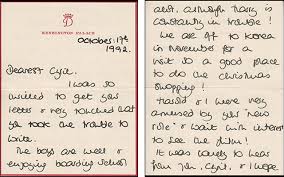 D
KENSINGTON PALACE
October: 17th
1992.
Dearest Cyril,
I was so
thrilled to get your
letter & very touched that
you took the trouble to
write.
The boys are well &
enjoying boarding school
and, although Harry is
constantly in trouble!
We are off to Korea
in November for a
visit so a good place
to do the Christmas
shopping!
Harold & I were very
amused by your 'new
role' & wait with interest
to see the film!
It was lovely to hear
from you, Cyril, & I hope